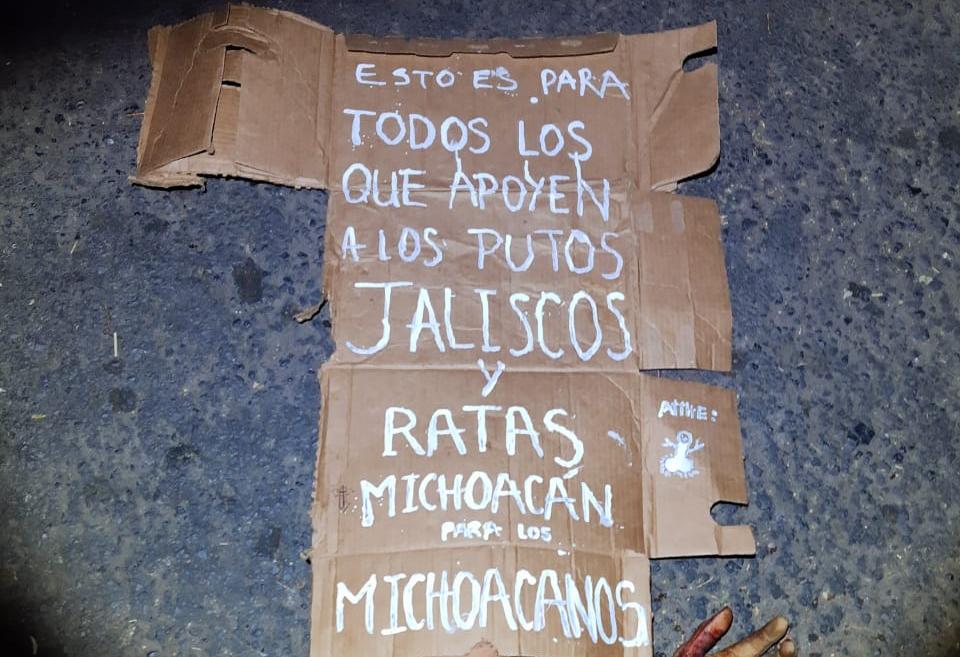 ESTO ES PARA
TODOS LOS
QUE APOYEN
A LOS PUTOS
JALISCOS
Y
RATAS
MICHOACÁN
PARA LOS
MICHOACANOS